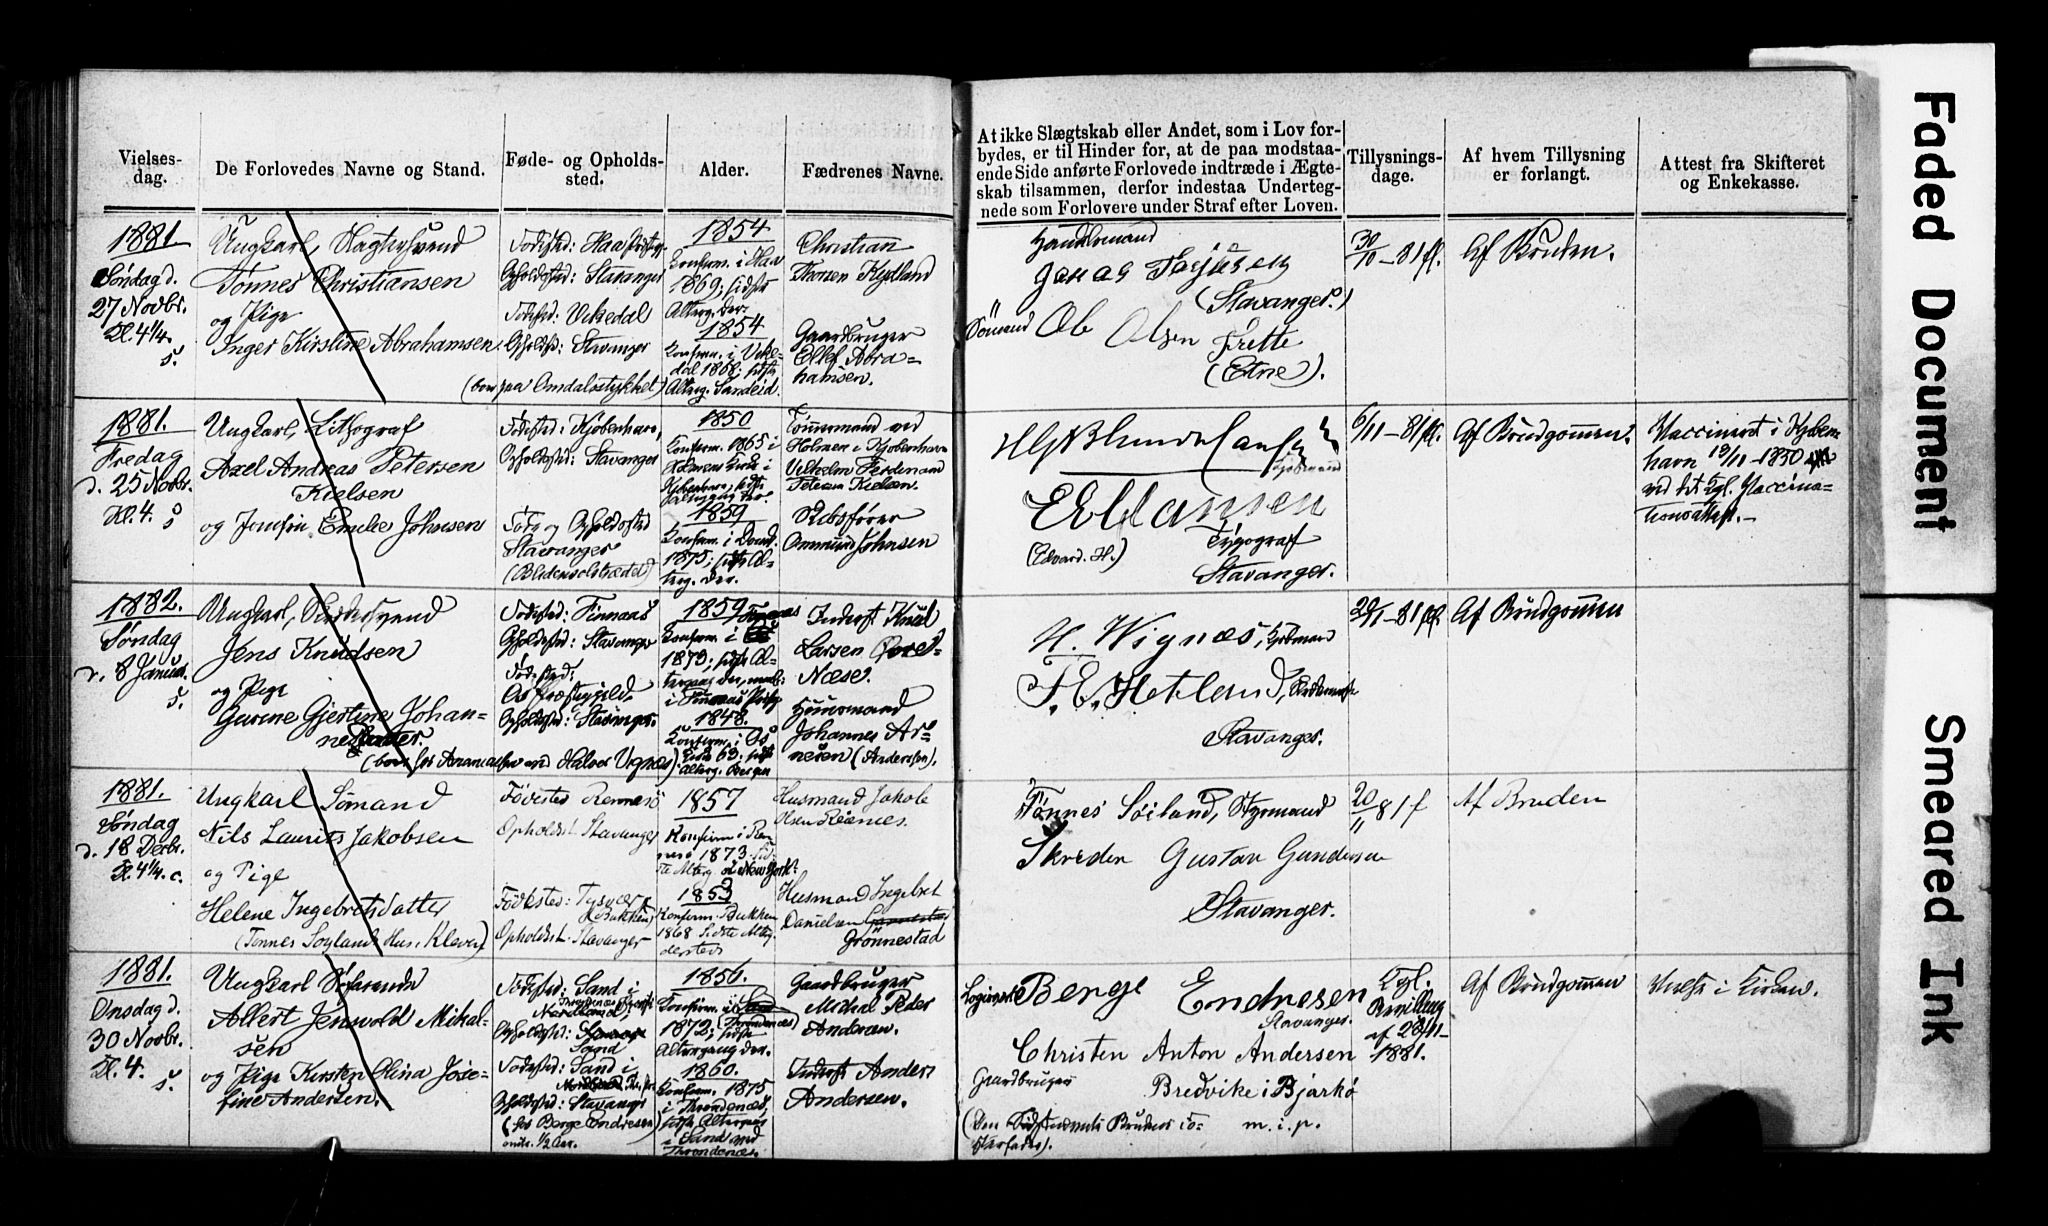 Vielses-
dag.
De Forlovedes Navne og Stand.
Føde- og Opholds-
sted.
Alder.
Fædrenes Navne.
At ikke Slægtskab eller Andet, som i Lov for-
bydes, er til Hinder for, at de paa modstaa-
ende Side anførte Forlovede indtræde i Ægte-
skab tilsammen, derfor indestaa Underteg-
nede som Forlovere under Straf efter Loven.
Tillysnings-
dage.
Af hvem Tillysning
er forlangt.
Attest fra Skifteret
og Enkekasse.
1881
Søndag d.
27 Novbr.
Kl. 4¼.
s.
Ungkarl, Slagtersvend
Tønnes Christiansen
og Pige
Inger Kirstine Abrahamsen
(bor paa Omdalsstykket)
Fødested:
Opholdssted: Stavanger
Fødested: Vikedal
Opholdsst: Stavanger
1854
Konfirm. i Haa
1869; sidst
Alterg. der.
1854
Konfirm. i Vike-
dal 1868; sidste
Alterg. Sandeid.
Christian
Thorsen Kydland
Gaardbruger
Ellef Abra-
hamsen.
Handelsmand
Jonas Tarjesen
(Stavanger.)
Sömand Ole Olsen Frette
(Etne).
30/10-81 fl.
Af Bruden.
1881.
Fredag
d. 25 Novbr.
Kl. 4.
s
Ungkarl, Lithograf
Axel Andreas Petersen
Kielsen
og Jomfru Emilie Johnsen
Fødested: Kjøbenhavn,
Opholdssted: Stavanger
Føde og Opholdssted
Stavanger
(Blidensolstrædet)
1850
Konfirm. 1865 i
Holmens Kirke i
Kjøbenhavn, sidste
1859
Konfirm. i Domk.
1875; sidste Al-
terg. der.
Tømmermand ved
Holmen i Kjøbenhavn
Vilhelm Ferdinand
Petersen Kielsen.
Skibsfører
Ommund Johnsen
Kjøbmand
E Hansen
(Edvard. H.) Typograf
Stavanger.
6/11-81 fl.
Af Brudgommen.
Vaccineret i Kjøben-
havn 13/11-1850
ved det kgl. Vaccina-
tionsattest.-
1882.
Søndag
d. 8 Januar.
s.
Ungkarl, Skrædersvend
Jens Knudsen
og Pige
Gurine Gjertine Johan-
nesdatter.
Fødested: Finnaas
Opholdssted: Stavanger
Fødested:
Os Præstegjeld.
Opholdsst: Stavanger.
1859 Finnaas
Konfirm. i
1873; sidste Al-
i Finnaas
1848.
Konfirm. i Os
Kirke 63; sidst
Alterg. Bergen
Inderst Knud
Larsen
Næse.
Husmand
Johannes Ar-
nesen (Andersen).
H. Vignæs, Kjøbmand
T. E. Hetland,
Stavanger.
Af Brudgommen
1881.
Søndag
d. 18 Decbr.
Kl. 4¼. c.
Ungkarl Sömand
Nils Laurits Jakobsen
og Pige
Helene Ingebretsdatter
(Tønnes Søylands Hus, Kleven)
Födested: Rennesö
Opholdst. Stavanger
Födested: Tysvær
(Bukken)
Opholdst. Stavanger
1857
Konfirm i Ren-
nesö 1873. Sid-
ste Alterg i New York.
1853
Konfirm. Bukken
1868 Sidste Alterg.
dersteds
Husmand Jakob
Olsen Reianes.
Husmand Ingebret
Danielsen
Grönnestad
Tönnes Soiland, Styrmand
Skreder Gustav Gundersen
Stavanger.
20/11 81 f
Af Bruden
1881.
Onsdag d.
30 Novbr.
Kl. 4.
s.
Ungkarl Søfarende
Albert Jenvold Mikal-
sen
og Pige Kirsten Olina Jose-
fine Andersen.
Fødested: Sand i
Throndenæs
Nordland
Opholdssted:
Sand
Fødested: Sand i
Opholdssted: Stavanger
(hos Berge Endresen)
omtr. 1/2 Aar.
1856.
Konfirm. i
(Throndenæs)
1872; sidste
Altergang der.
1860.
Konfirm. 1875
i Throndenæs,
i Sand ved
Throndenæs.
Gaardbruger
Mikal Peder
Andersen.
Inderst Anders
Andersen.
Logismd. Berge Endresen
Stavanger.
Christen Anton Andersen
Gaardbruger Bredvike i Bjarkö
(Den Sidstnævnte Brudens
Værfader). m. i. p.
Kgl.
Bevilling
af 28/11-
1881.
Af Brudgommen
Vielse i Kirken.
Faded Document
Smeared Ink